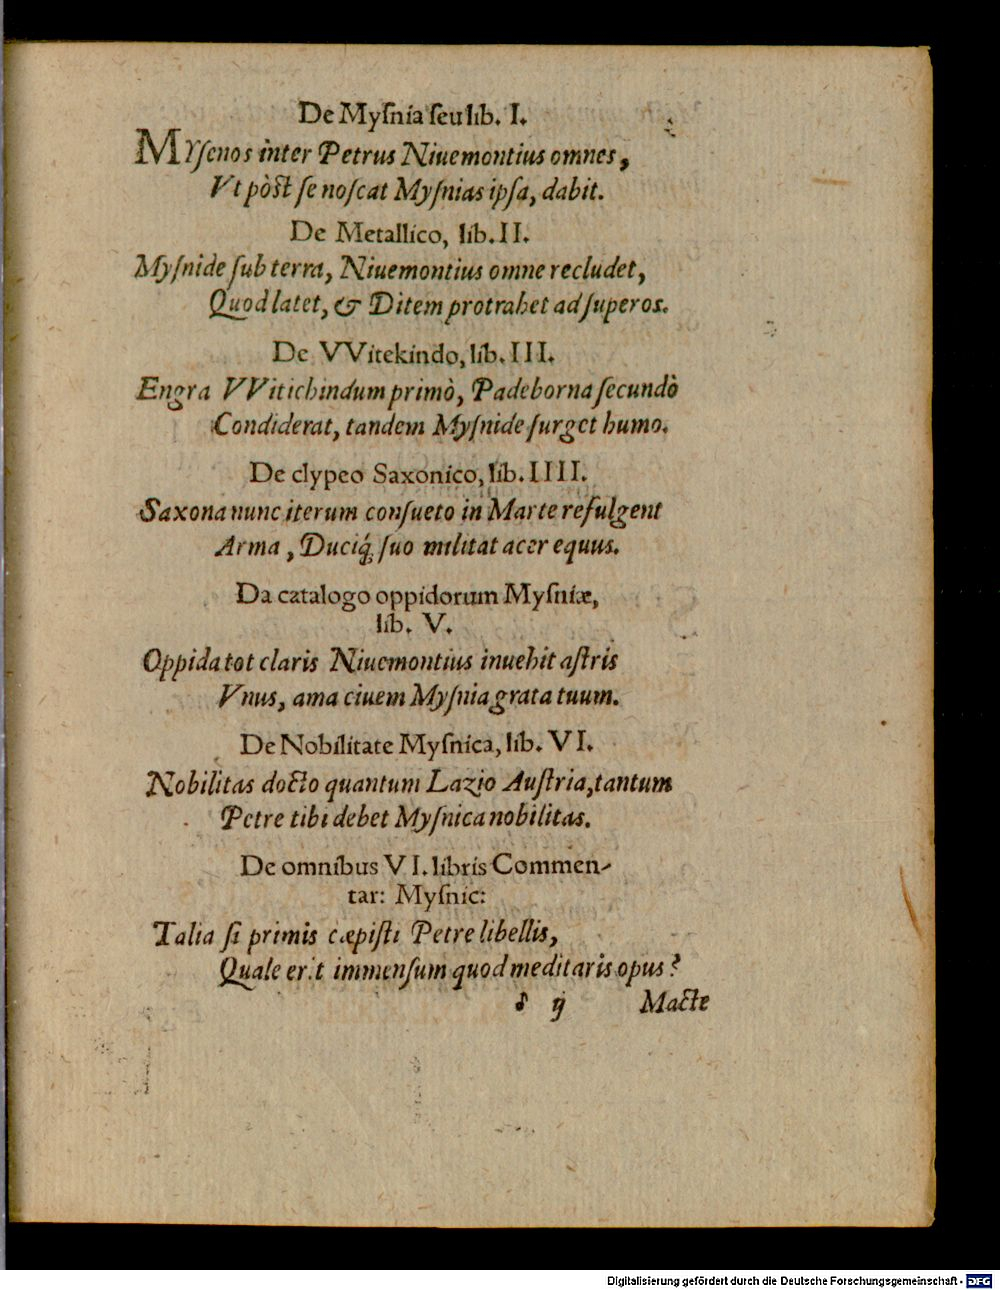 De Myſnia ſeu lib. I.
MYſenos inter Petrus Niuemontius omnes,
Vt pòſt ſe noſcat Myſnias ipſa, dabit.
De Metallico, lib. II.
Myſnide ſub terra, Niuemontius omne recludet,
Quod latet, & Ditem protrahet ad ſuperos.
De VVitekindo, lib. III.
Engra VVitichindum primò, Padeborna ſecundò
Condiderat, tandem Myſnide ſurget humo.
De clypeo Saxonico, lib. IIII.
Saxona nunc iterum conſueto in Marte refulgent
Arma, Duciq́; ſuo militat acer equus.
Da catalogo oppidorum Myſniæ,
lib. V.
Oppida tot claris Niuemontius inuehit aſtris
Vnus, ama ciuem Myſnia grata tuum.
De Nobilitate Myſnica, lib. VI.
Nobilitas docto quantum Lazio Auſtria, tantum
Petre tibi debet Myſnica nobilitas.
De omnibus VI. libris Commen-
tar: Myſnic:
Talia ſi primis cæpiſti Petre libellis,
Quale erit immenſum quod meditaris opus?
ij Macte
Digitalisierung gefördert durch die Deutsche Forschungsgemeinschaft - DFG